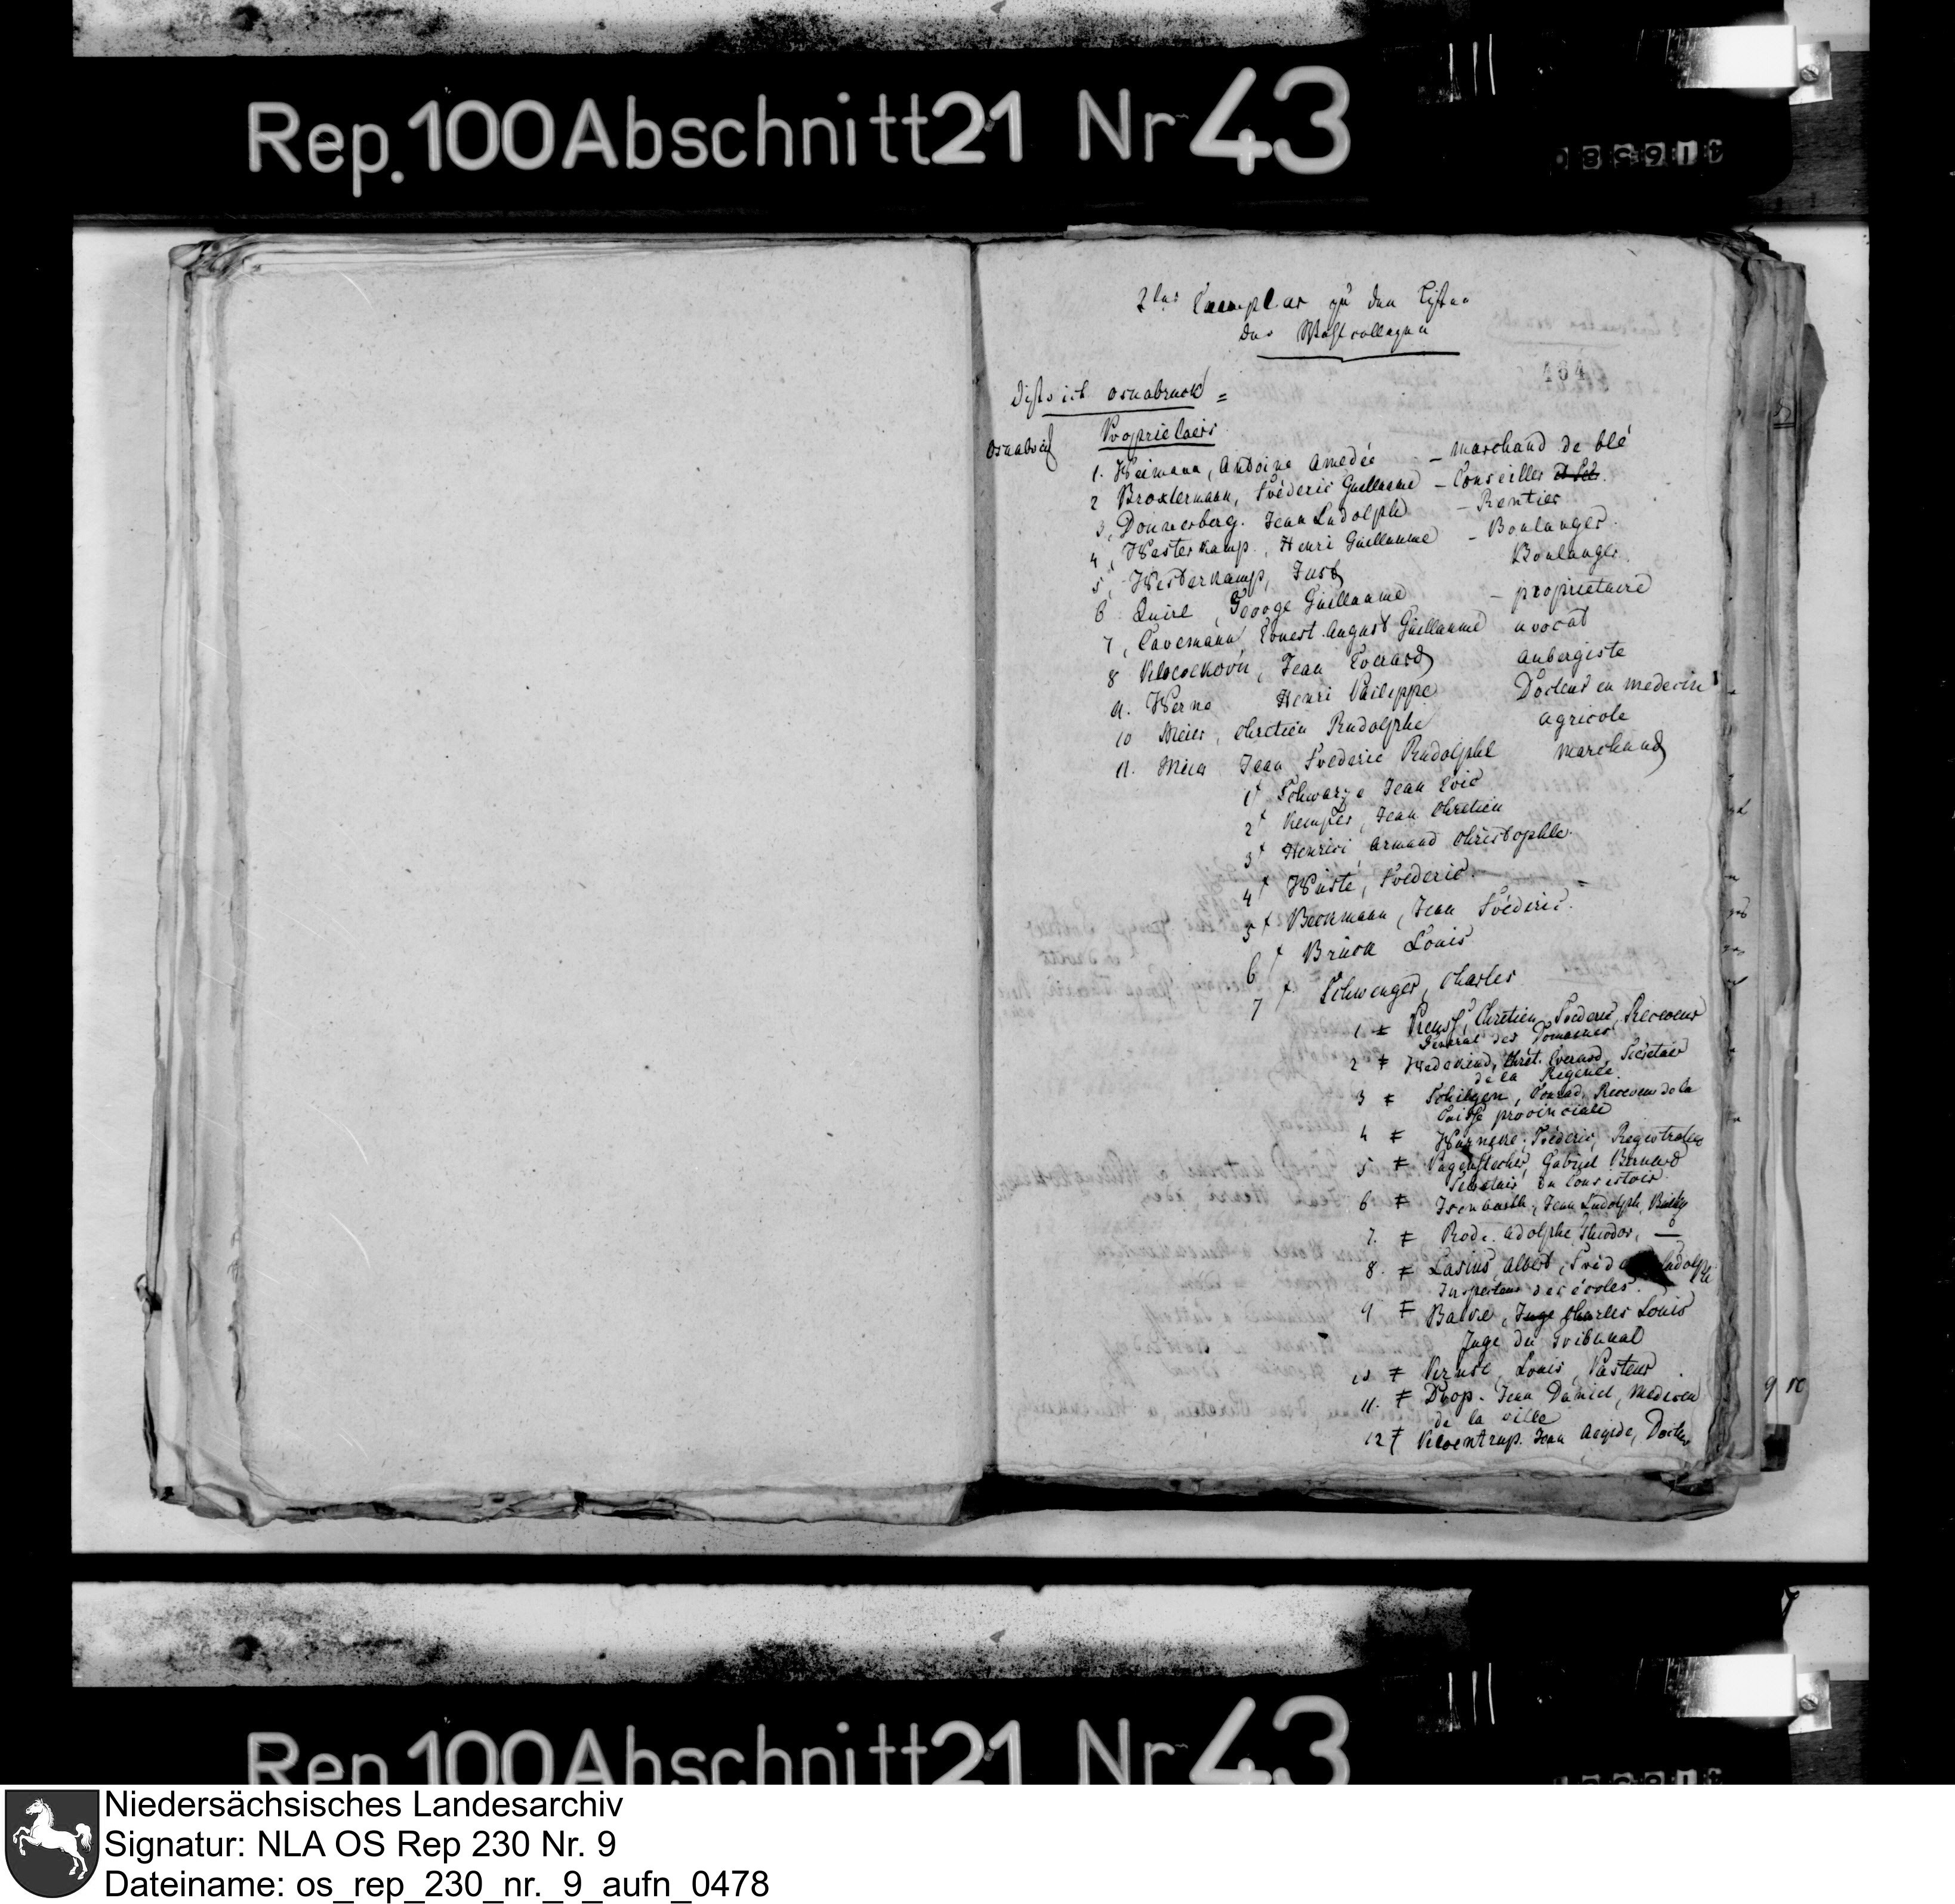 Rep. 100 Abschnitt 21 Nr 43
2tes Exemplar zu den Listen
der Wahlcollegien
464
District Osnabruck =
Osnabrück
Proprietairs
1. Weimann, Antoine Amedée – marchand de blé
2 Broxtermann, Fréderic Guillaume – Conseiller
3, Donnerberg. Jean Ludolph – Rentier
4, Westerkamp, Henri Guillaume – Boulanger.
5, Westerkamp, Just Boulanger.
6 George Guillaume – proprietaire
7, Cavemann, Ernest August Guillaume avocat
8 Jean Everard aubergiste
9. Werne Henri Philippe Docteur en medecin
10 Meier, Chretien Rudolphe agricole
11. Meier Jean Frederic Rudolphe marchand
1 Schwarze Jean Eric
2 Kemper, Jean Chretien
3 Henrici Armand Christophle.
4 Wüste, Fréderic.
5 Beckmann, Jean Fréderic.
6 Brück Louis
7 Schwenger, Charles
1 ≠ Preuss, Chretien Frederic Receveur
General des Domaines
2 ≠ Wedekind, Chrét. Everard, Secretair
de la Regence.
3 ≠ Schilgen, Conrad, Receveur de la
Caisse provinciale
4 ≠ Fréderic, Registrateur
5 ≠ Pagenstecher, Gabriel Bernard
Secretair du Consistoir.
6 ≠ Jean Ludolph,
7. ≠ Rode. Adolphe Theodor, —
8. ≠ Lasius, Albert, Fréd Rudolph
Inspecteur des écoles.
9 ≠ Charles Louis
Juge du Tribunal
10 ≠ Kruse, Louis, Pasteur
11. ≠ Droop. Jean Daniel, Medicin
de la ville
12 ≠ Kloentrup. Jean Aegide, Docteur
9
Rep. 100 Abschnitt 21 Nr 43
Niedersächsisches Landesarchiv
Signatur: NLA OS Rep 230 Nr. 9
Dateiname: os_rep_230_nr._9_aufn_0478